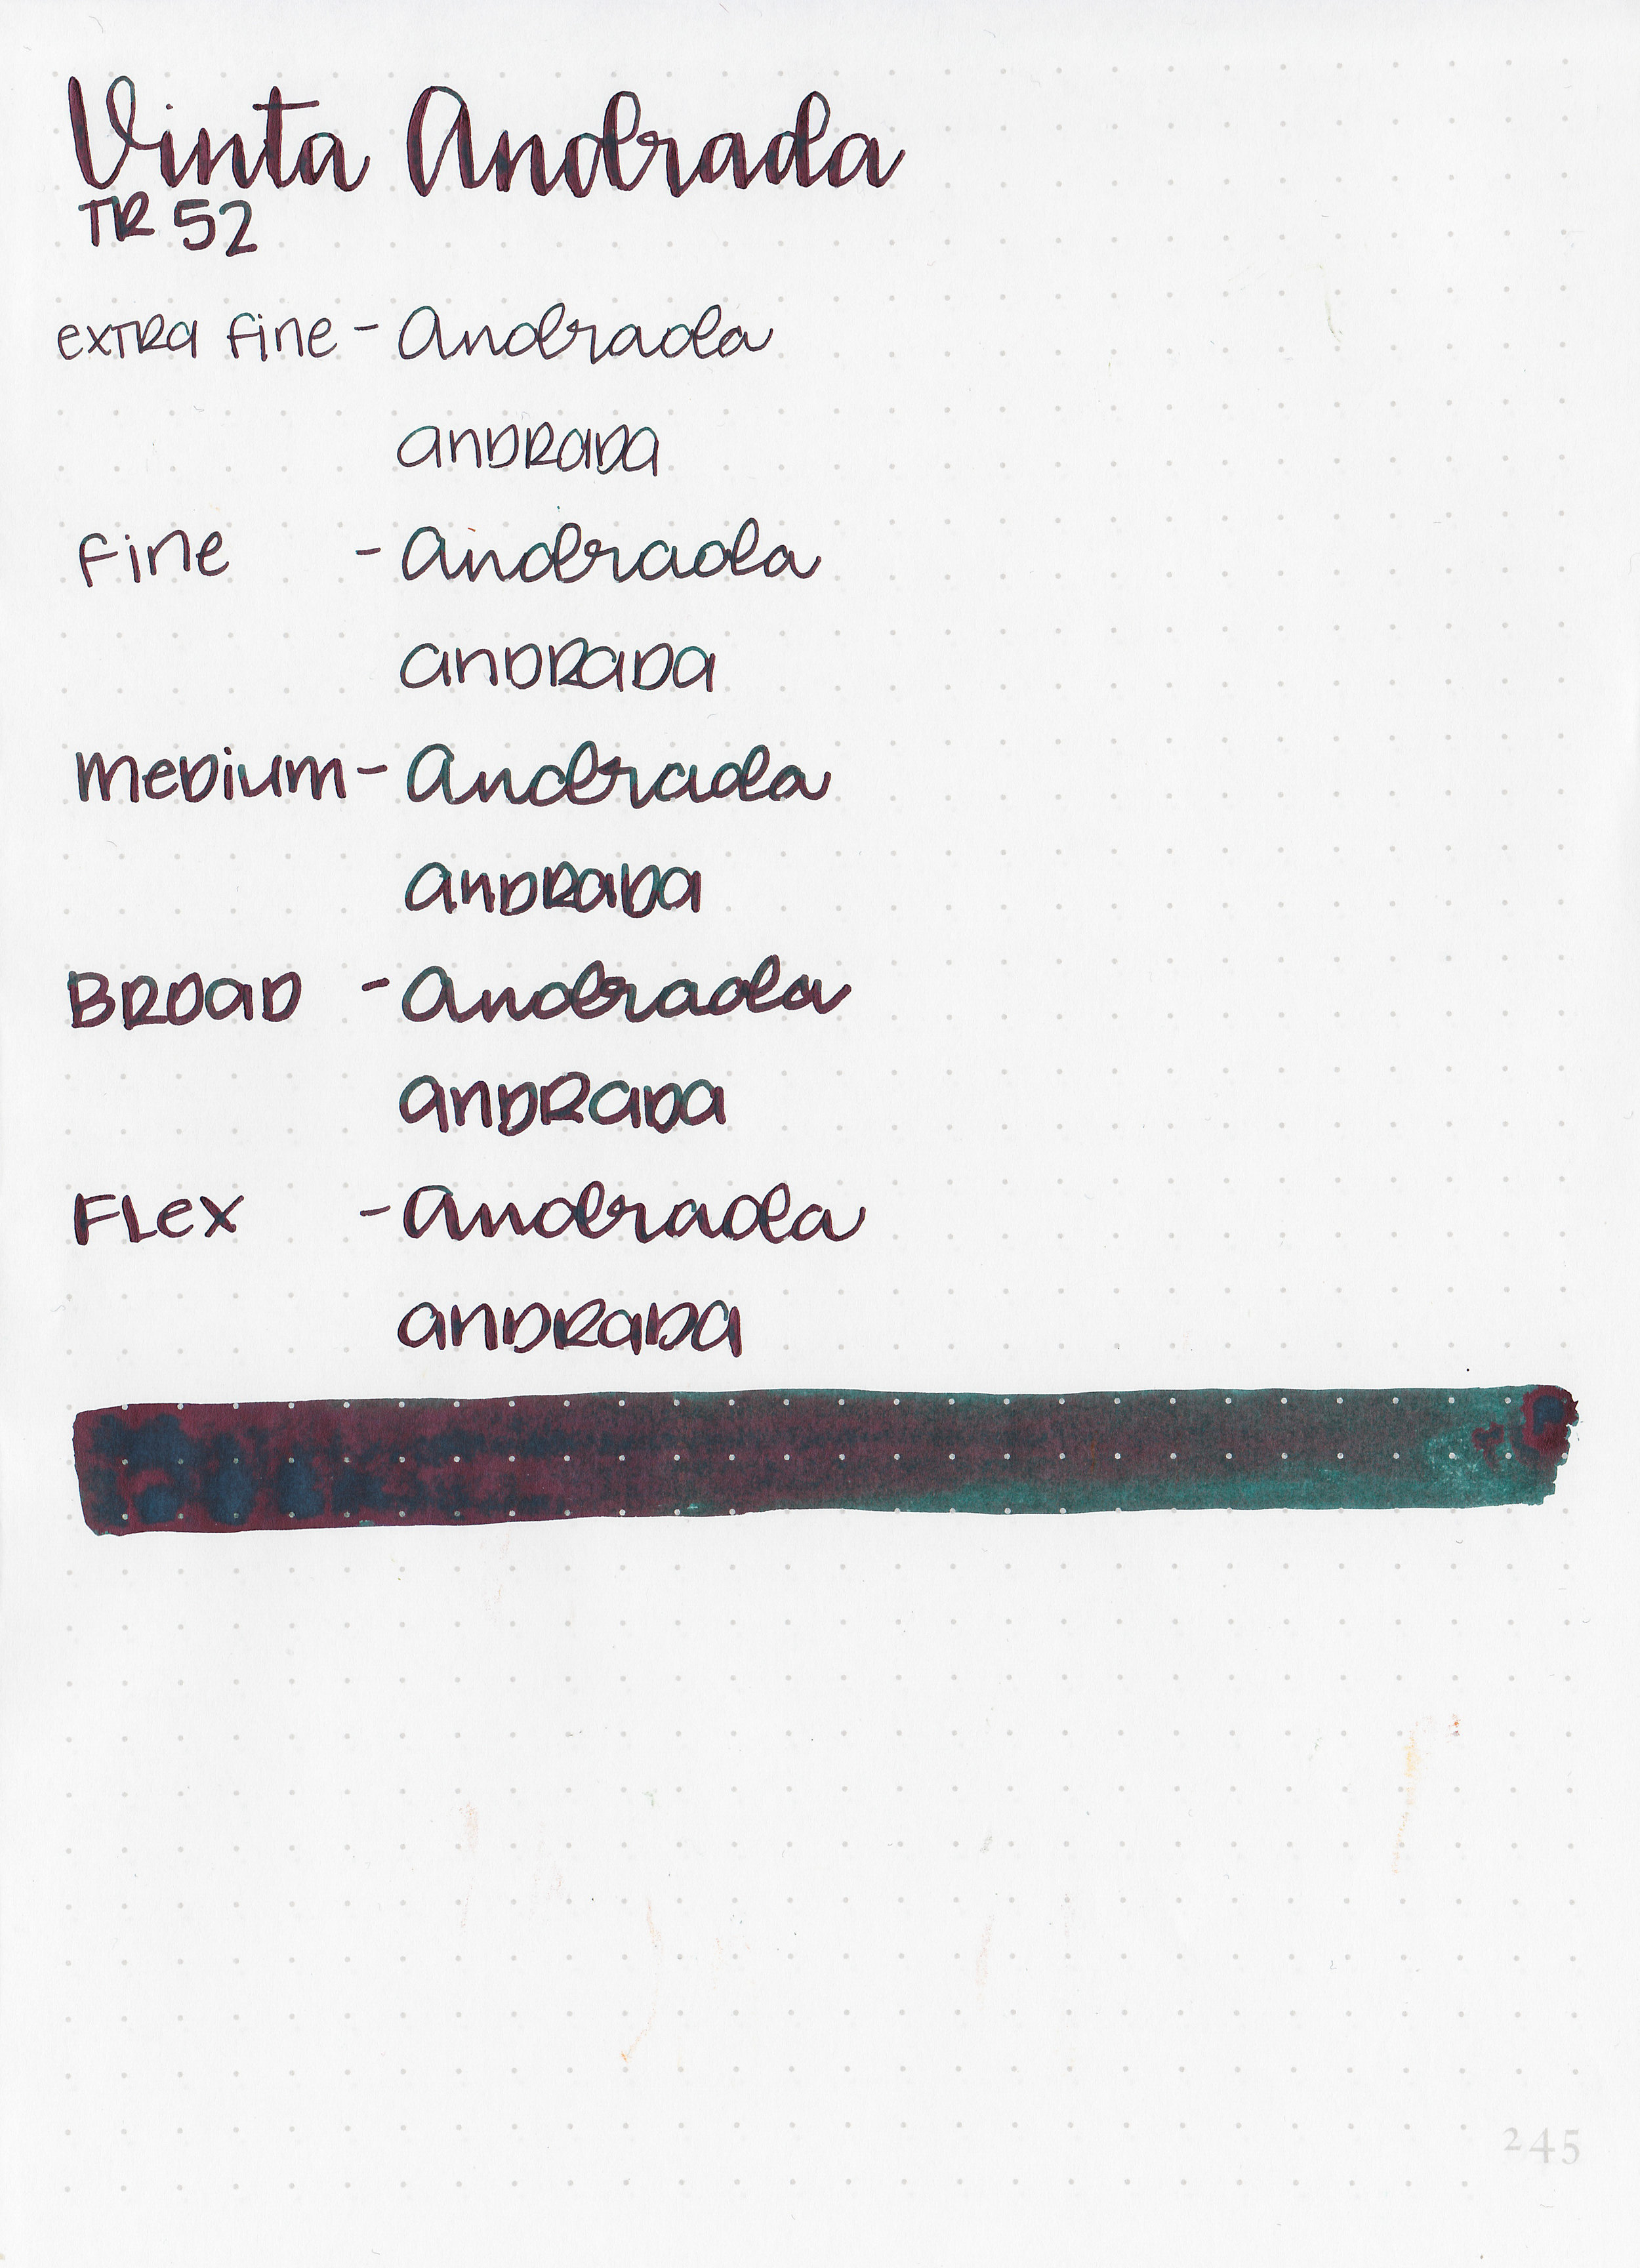 Vinta Andrada
TR 52
extra fine - Andrada
andrada
fine - Andrada
andrada
medium - Andrada
andrada
Broad - Andrada
andrada
Flex - Andrada
andrada
245